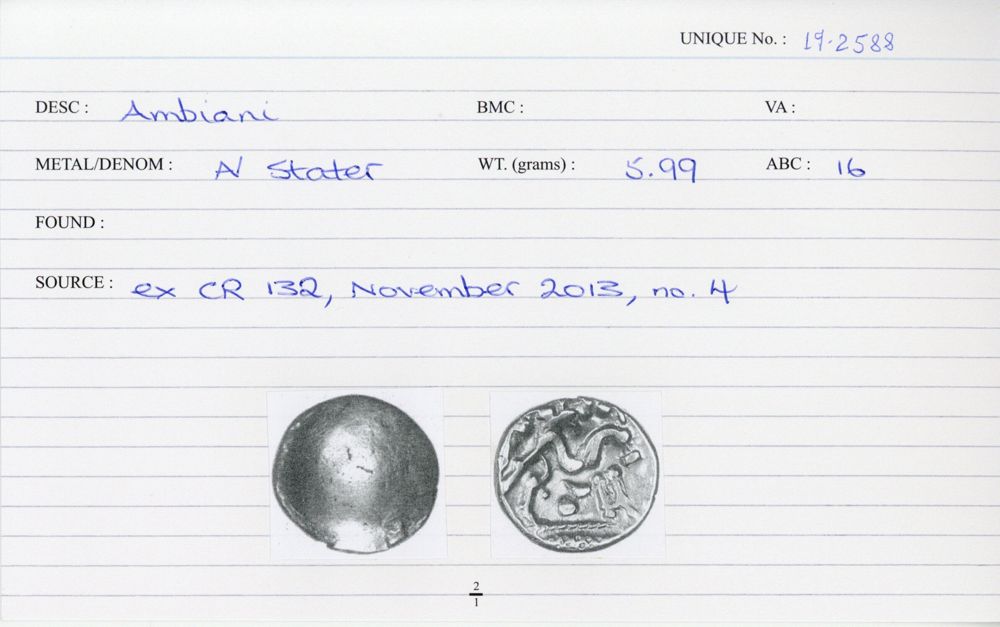 UNIQUE No. : 19.2588
DESC : Ambiani BMC : VA :
METAL/DENOM : N Stater WT. (grams) : 5.99 ABC : 16
FOUND :
SOURCE : ex CR 132, November 2013, no. 4
2
1